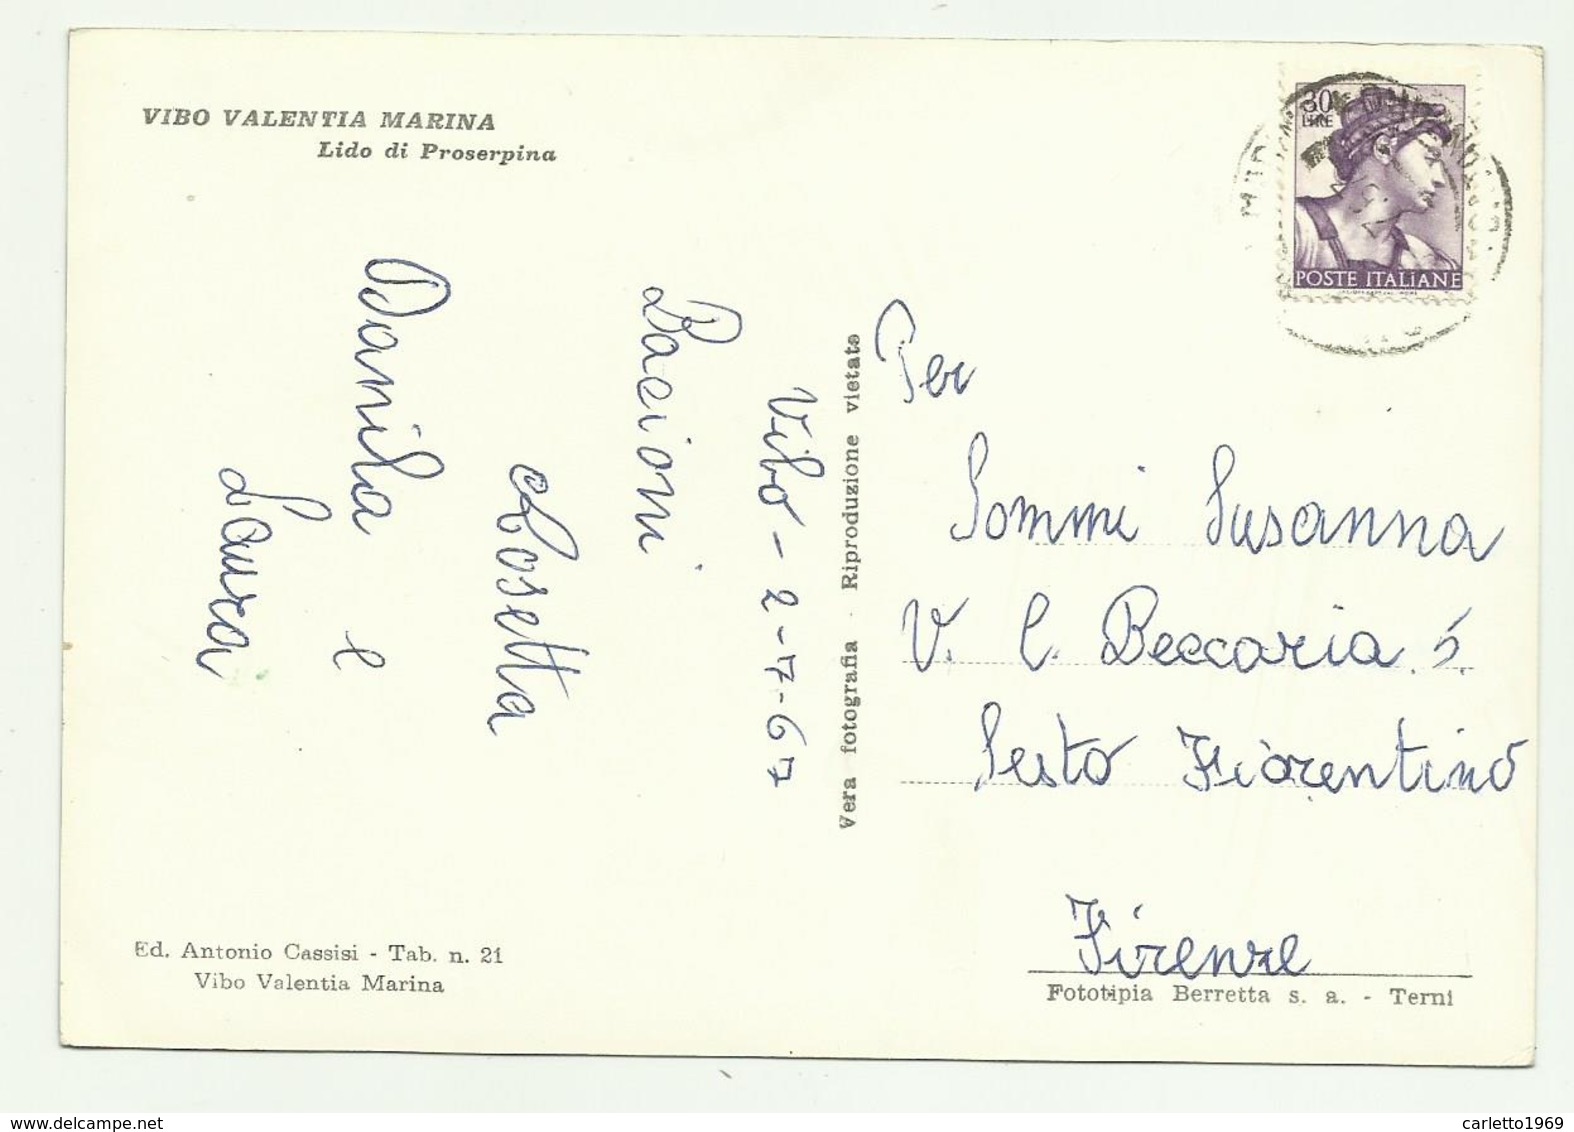 VIBO VALENTIA MARINA
Lido di Proserpina
Vibo - 2-7-67
Bacioni
Rosetta
Danila e
Laura
Ed. Antonio Cassisi - Tab. n. 21
Vibo Valentia Marina
Vera fotografia - Riproduzione vietata
30
LIRE
POSTE ITALIANE
Per
Sommi Susanna
V. C. Beccaria 5
Sesto Fiorentino
Firenze
Fototipia Berretta s. a. - Terni
delcampe.net
carletto1969